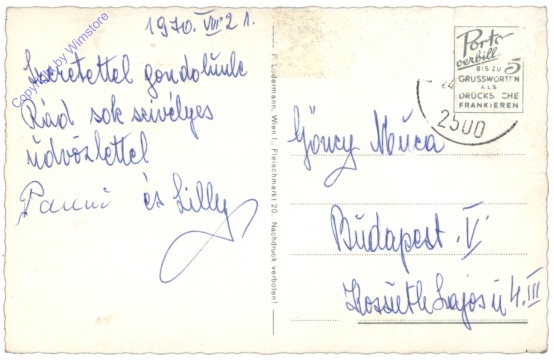 1970. VIII 21.
Szeretettel gondolunk
Rád sok szivélyes
üdvözlettel
Panni és Lilly
Copyright by Wimstore
P. Ledermann, Wien I., Fleischmarkt 20. Nachdruck verboten!
Porto
verbill.
BIS ZU 5
GRUSSWORTEN
ALS
DRUCKSACHE
FRANKIEREN
24
2500
Göncy Muca
Budapest. V.
Kossuth Lajos u 4. III